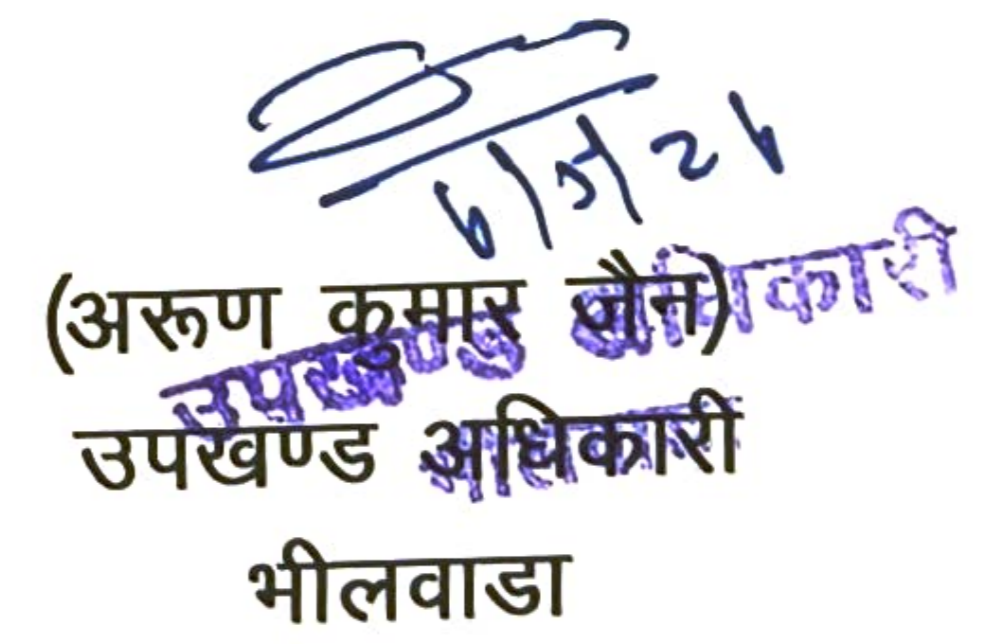 6/5/26
(अरूण कुमार जैन)
उपखण्ड अधिकारी
उपखण्ड अधिकारी
भीलवाडा